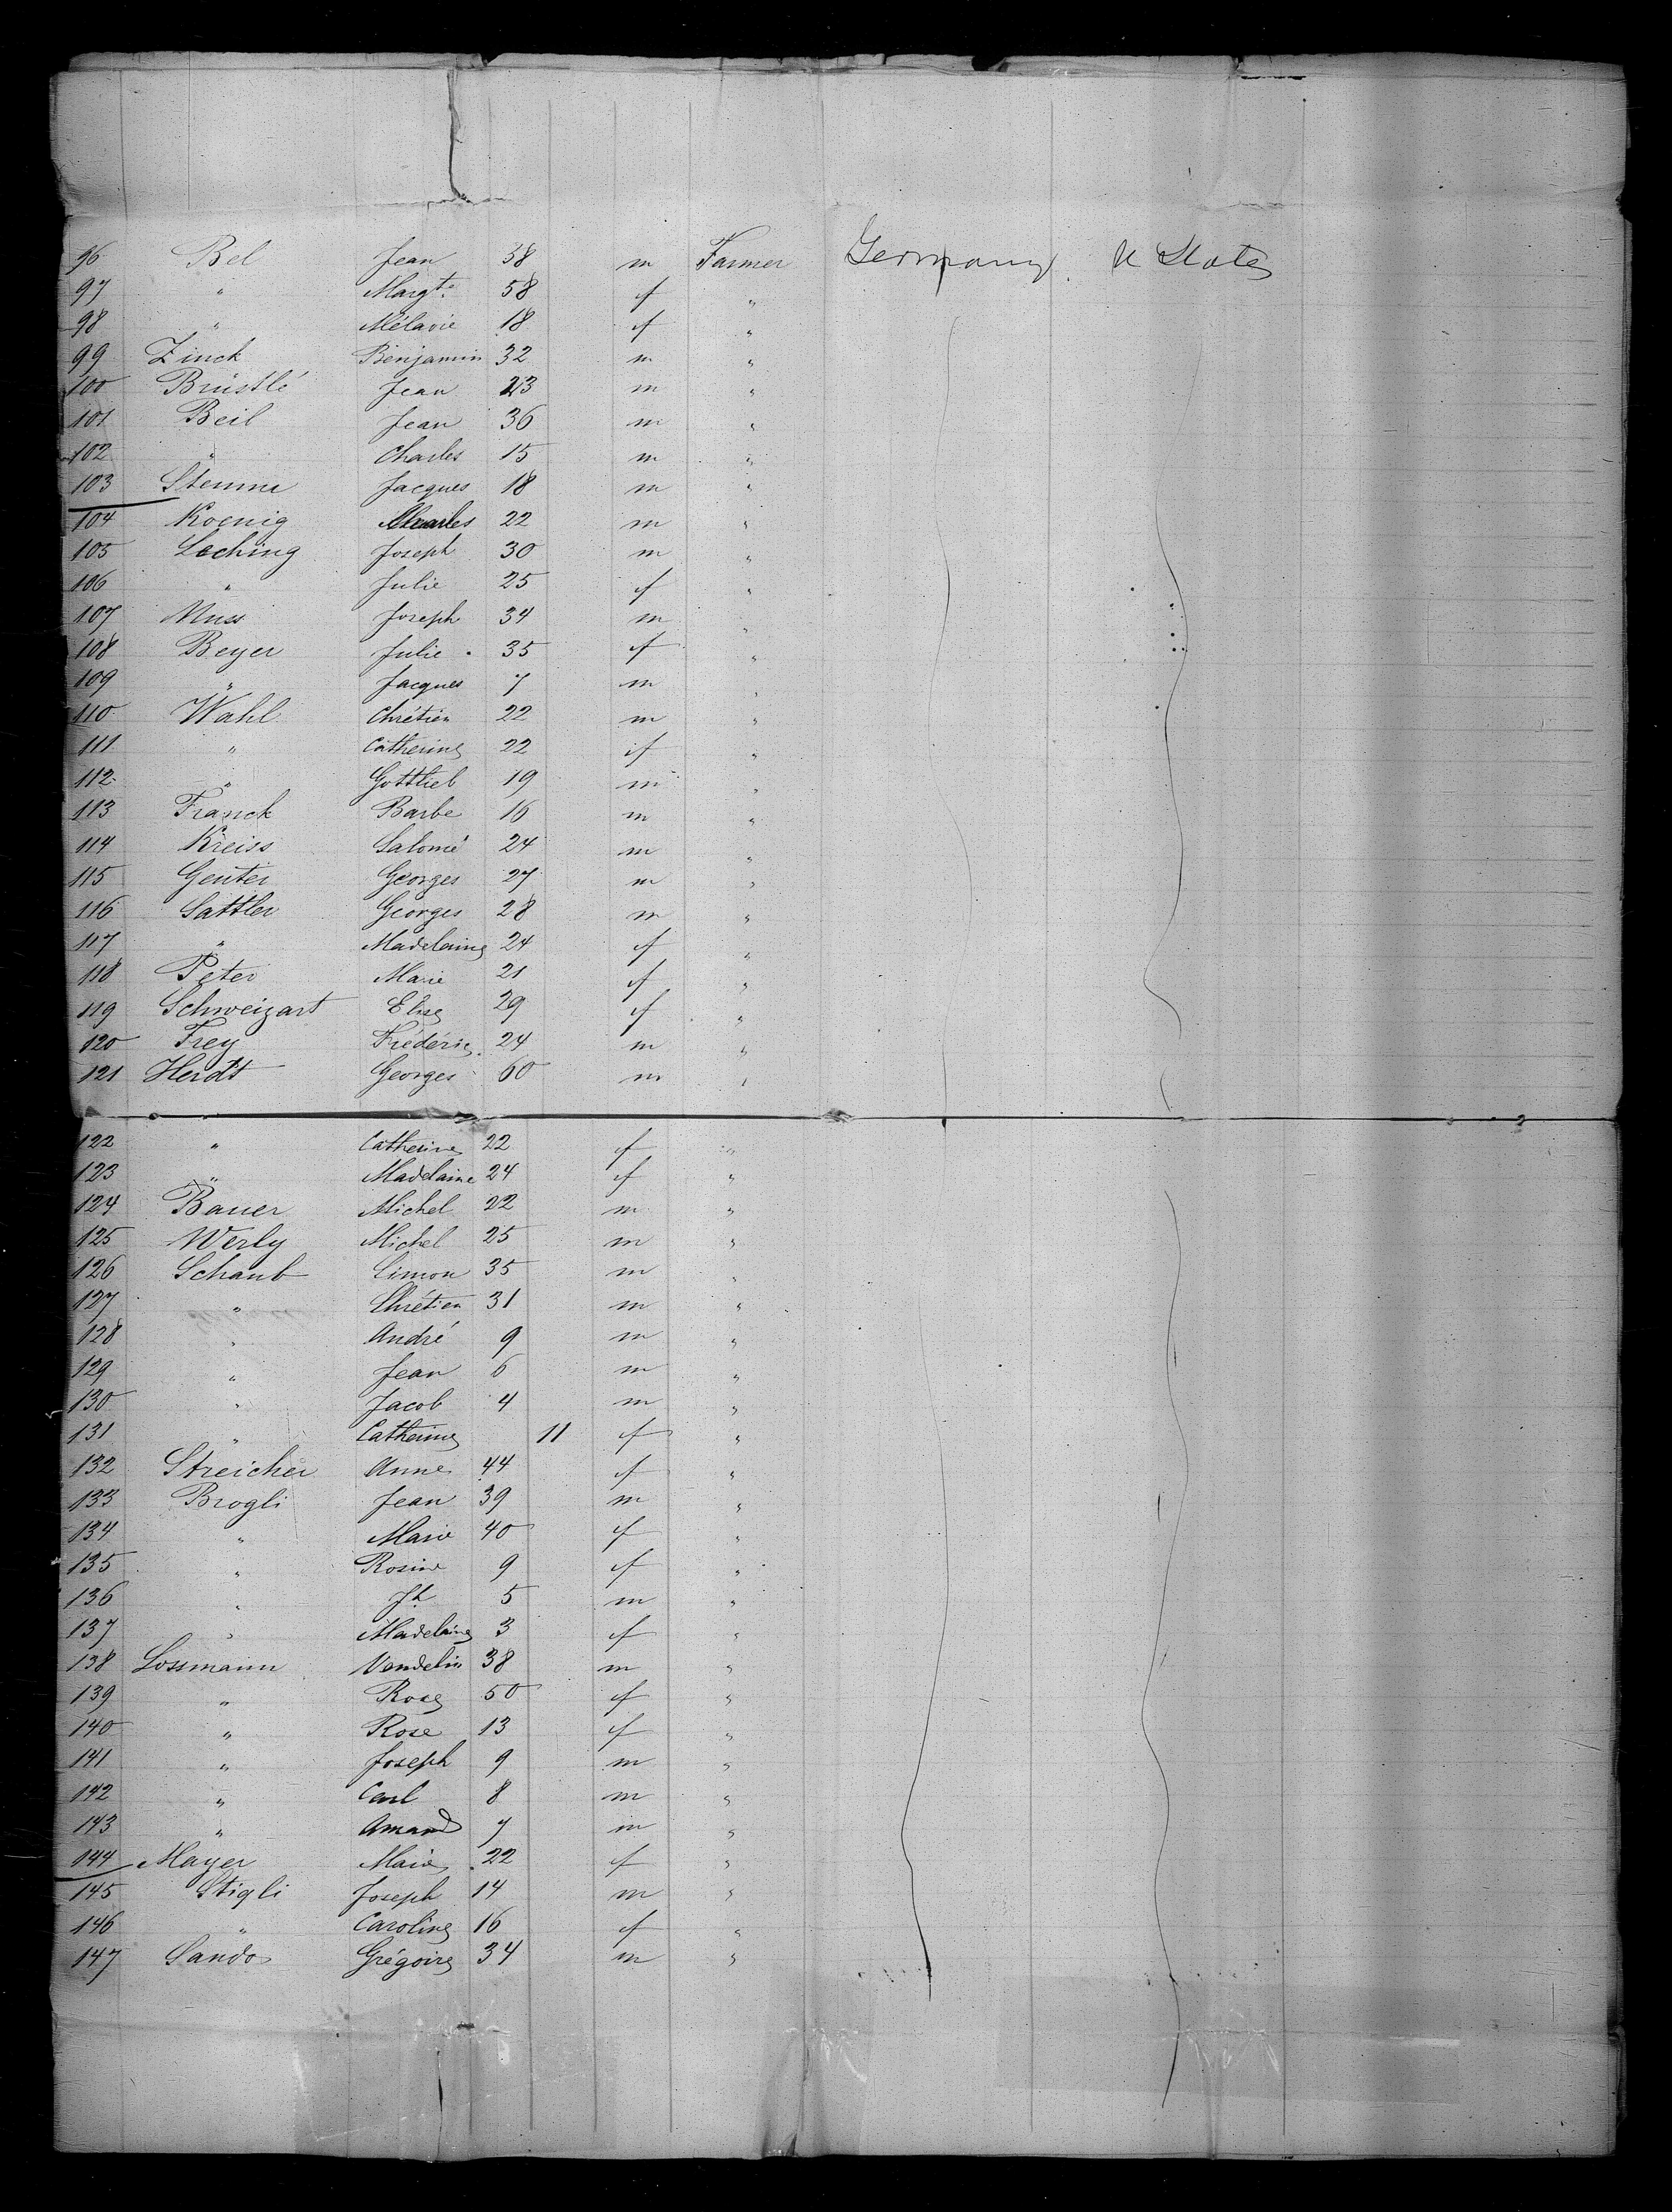 96 Bel Jean 38 m Farmer Germany U States
97 " Margte 58 f "
98 " Mélanie 18 f "
99 Zinck Benjamin 32 m "
100 Brüstlé Jean 23 m "
101 Beil Jean 36 m "
102 " Charles 15 m "
103 Jacques 18 m "
104 Koenig Charles 22 m "
105 Leching Joseph 30 m "
106 " Julie 25 f "
107 Muss Joseph 34 m "
108 Beyer Julie 35 f "
109 " Jacques 7 m "
110 Wahl Chrétien 22 m "
111 " Catherine 22 f "
112 " Gottlieb 19 m "
113 Franck Barbe 16 m "
114 Kreiss Salomé 24 m "
115 Genter Georges 27 m "
116 Sattler Georges 28 m "
117 " Madelaine 24 f "
118 Peter Marie 21 f "
119 Schweizart Elise 29 f "
120 Frey Frédéric 24 m "
121 Herdt Georges 60 m "
122 " Catherine 22 f "
123 " Madelaine 24 f "
124 Bauer Michel 22 m "
125 Werly Michel 25 m "
126 Schaub Simon 35 m "
127 " Chrétien 31 m "
128 " André 9 m "
129 " Jean 6 m "
130 " Jacob 4 m "
131 " Catherine 11 f "
132 Streicher Anne 44 f "
133 Brogli Jean 39 m "
134 " Marie 40 f "
135 " Rosine 9 f "
136 " Jh 5 m "
137 " Madelaine 3 f "
138 Lossmann Vendelin 38 m "
139 " Rose 50 f "
140 " Rose 13 f "
141 " Joseph 9 m "
142 " Carl 8 m "
143 " Amand 7 m "
144 Mayer Marie 22 f "
145 Stigli Joseph 14 m "
146 " Caroline 16 f "
147 Sando Grégoire 34 m "